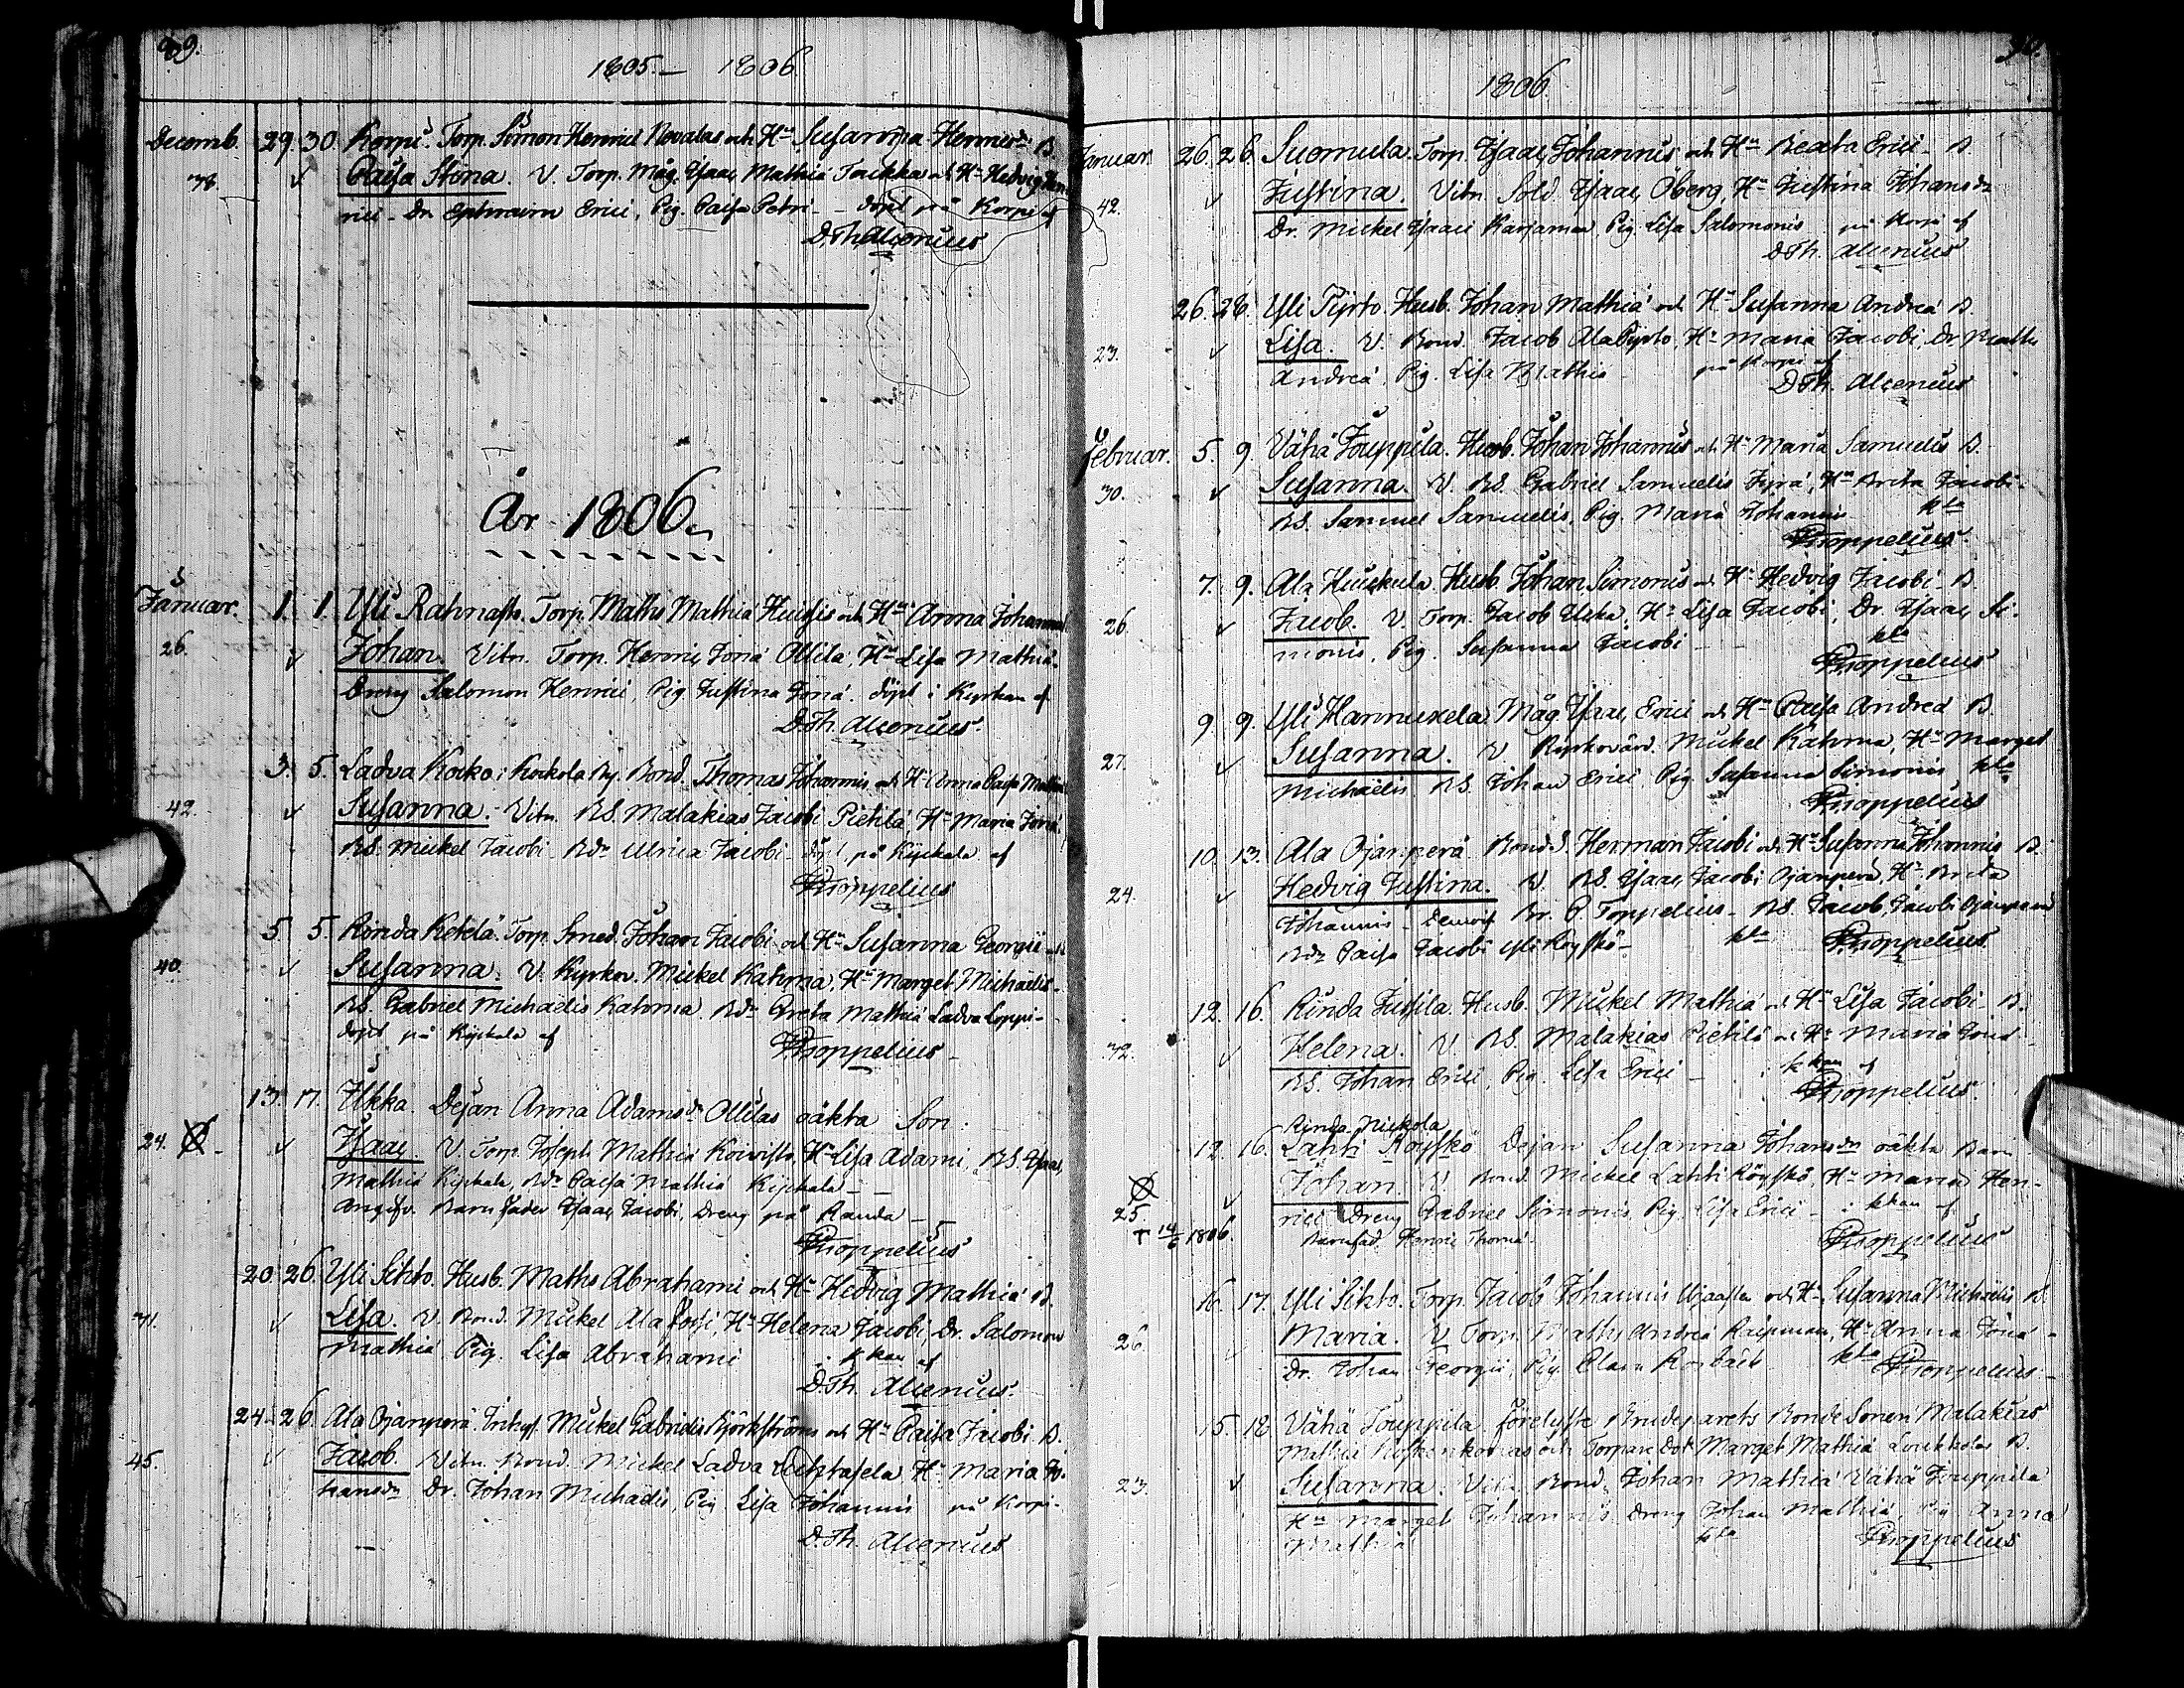 1805.— 1806.
Decemb. 29. 30. Korpi. Torp. Simon Henrici Novalas och Hu Susanna Henricsdr B.
38. Caisa Stina. V. Torp. Måg. Isaac Mathiæ Torikka och Hu Hedvig Hen-
rici – Dr Ephraim Erici, Pig. Caisa Petri – döpt på Korpi af
D.Th. Alcenius
År 1806.
Januar. 1. 1. Yli Rahnasto. Torp. Maths Mathiæ Huisis och Hu Anna Johannis
26. Johan. Vitn. Torp. Henric Jonæ Ollila, Hu Lisa Mathiæ.
Dreng Salomon Henrici, Pig. Justina Jonæ. döpt i Kyrkan af
D.Th. Alcenius.
3. 5. Ladva Kocko i Kockola By. Bond. Thomas Johannis och Hu Anna Caisa Mathiæ
42. Susanna. Vitn. BS. Malakias Jacobi Pietilä, Hu Maria Jonæ
BS. Mickel Jacobi. Bdr Ulrica Jacobi. döpt på Kypkala af
P. Toppelius
5. 5. Rinda Ketelä. Torp. Smed. Johan Jacobi och Hu Susanna Georgii B
40. Susanna. V. Kyrkov. Mickel Kahma, Hu Marget Michaelis.
BS. Gabriel Michaelis Kahma. Bdr Greta Mathiæ Ladva Loppi
döpt på Kypkala af
P. Toppelius
13. 17. Ukka. Dejan Anna Adamsdr Ollilas oäkta Son:
24. Isaac. V. Torp. Joseph Mathiæ Koivisto, Hu Lisa Adami, BS. Isaac
Mathiæ Kypkala, Bdr Caisa Mathiæ Kypkala –
Angifv. Barnfader Isaac Jacobi, Dreng på Randa –
P. Toppelius
20. 26. Yli Sihto. Husb. Maths Abrahami och Hu Hedvig Mathiæ B.
31. Lisa. V. Bond. Mickel Ala Posi, Hu Helena Jacobi, Dr. Salomon
Mathiæ Pig. Lisa Abrahami i kkan af
D.Th. Alcenius.
24. 26. Ala Ojanperä Inhys. Mickel Gabrielis Björkström och Hu Caisa Jacobi B.
45. Jacob. Vitn. Bond. Mickel Ladva Luhtasela Hu Maria Jo-
hansdr Dr. Johan Michaelis, Pig. Lisa Johannis på Korpi.
D.Th. Alcenius
1806.
Januar. 26. 26. Suomula. Torp. Isaac Johannis och Hu Beata Erici B
42. Justina. Vitn. Sold. Isaac Öberg, Hu Justina Johansdr
Dr. Mickel Isaaci Karjamaa Pig. Lisa Salomonis på Korpi af
D.Th. Alcenius
26. 28. Yli Pijrto. Husb. Johan Mathiæ och Hu Susanna Andreæ B.
23. Lisa. V. Bond. Jacob Ala Pijrto, Hu Maria Jacobi, Dr Maths
Andreæ, Pig. Lisa Mathiæ på Korpi af
D.Th. Alcenius
Februar. 5. 9. Vähä Jouppila. Husb. Johan Johannis och Hu Maria Samuelis B.
30. Susanna. V. BS. Gabriel Samuelis Jyrä, Hu Brita Jacobi.
BS. Samuel Samuelis, Pig. Maria Johannis kla
P. Toppelius
7. 9. Ala Huickula. Husb. Johan Simonis och Hu Hedvig Jacobi B
26. Jacob. V. Torp. Jacob Ukka, Hu Lisa Jacobi, Dr. Isaac Si-
monis, Pig. Susanna Jacobi – kla
P. Toppelius
9. 9. Yli Hannuxela. Måg. Isaac Erici och Hu Caisa Andreæ B.
27. Susanna. V Kyrkovärd. Mickel Kahma, Hu Marget
Michaelis. BS. Johan Erici, Pig. Susanna Simonis, kla
P. Toppelius
10. 13. Ala Ojanperä Bond. S. Herman Jacobi och Hu Susanna Johannis B.
24. Hedvig Justina. V. BS. Isaac Jacobi Ojanperä, Hu Brita
Johannis – P. Toppelius – BS. Jacob Jacobi Ojanperä
Bdr Caisa Jacobi Yli Röyskö – kla P. Toppelius
12. 16. Rinda Jussila. Husb. Mickel Mathiæ och Hu Lisa Jacobi B.
32. Helena. V. BS. Malakias Pietilä och Hu Maria Jonæ
BS. Johan Erici, Pig. Lisa Erici – i kkan af
P. Toppelius.
Rinda Nickola
12. 16. Lahti Röyskö Dejan Susanna Johansdr oäkta Barn
Johan V. Bond. Mickel Lahti Röyskö, Hu Maria Hen-
25 rici Dreng Gabriel Simonis Pig. Lisa Erici – i kkan af
† 14/6 1806. Barnfad. Henric Thomæ P. Toppelius
16. 17. Yli Sihto. Torp. Jacob Johannis och Hu Susanna Michaelis B
26. Maria. V Torp. Maths Andreæ Kaipman, Hu Anna Jonæ
Dr. Johan Georgii, Pig. Clara kla P. Toppelius
15. 18. Vähä Jouppila Förelyste Brudeparets Bonde Sonen Malakias
Mathiæ och Torpare Dot. Marget Mathiæ Loukkolas B.
23. Susanna. Vitn. Bond. Johan Mathiæ Vähä Jouppila
Hu Marget Johannis, Dreng Johan Mathiæ, Pig. Anna
Mathiæ kla P. Toppelius